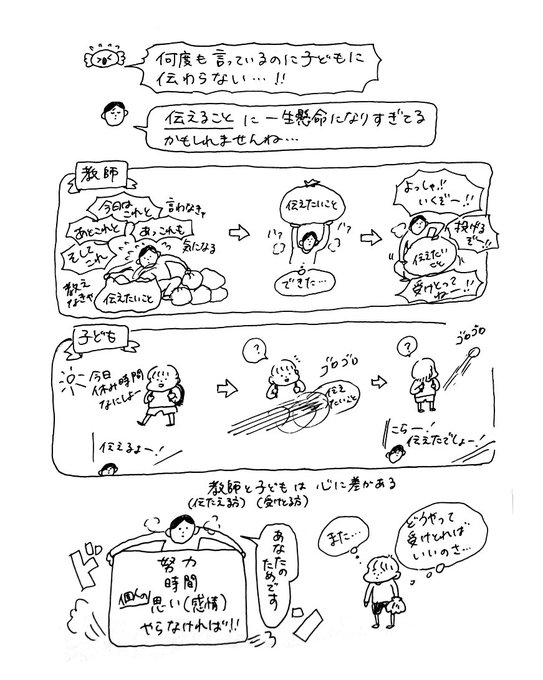 何度も言っているのに子どもに
伝わらない…!!
伝えること に一生懸命になりすぎてる
かもしれませんね…
教師
今日は
これと
言わなきゃ
あとこれと
あっこれも
気になる
そして
これ
教え
なきゃ
伝えたいこと
伝えたいこと
できた…
よっしゃ!!
いくぞー!!
投げる
ぞー!!
伝えたい
こと
受けとって
ねー!!
子ども
今日
休み時間
なにしよー
伝えるよー!
?
ゴロゴロ
伝え
たいこと
?
ゴロゴロ
こらー!
伝えたでしょー!
教師と子どもは 心に差がある
(伝たえる方) (受けとる方)
あなたの
ためです
努力
時間
個人の
思い(感情)
やらなければ!!
ドン
また…
どうやって
受けとれば
いいのさ…